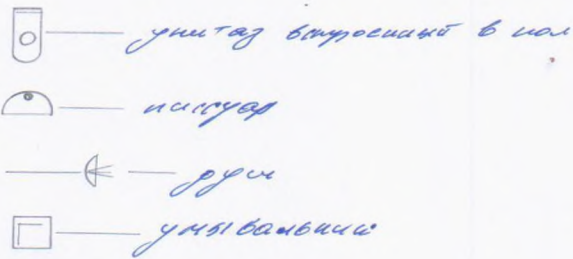 унитаз встроенный в пол
писсуар
душ
умывальник